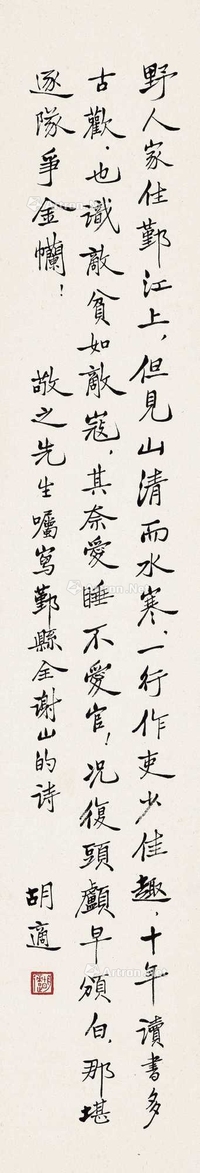 野人家住鄞江上，但見山清而水寒，一行作吏少佳趣，十年讀書多
古歡，也識敵貧如敵寇，其奈愛睡不愛官！況復頭顱早頒白，那堪
逐隊爭金幱！　敬之先生囑寫鄞縣全謝山的詩　胡適
Artron.Net